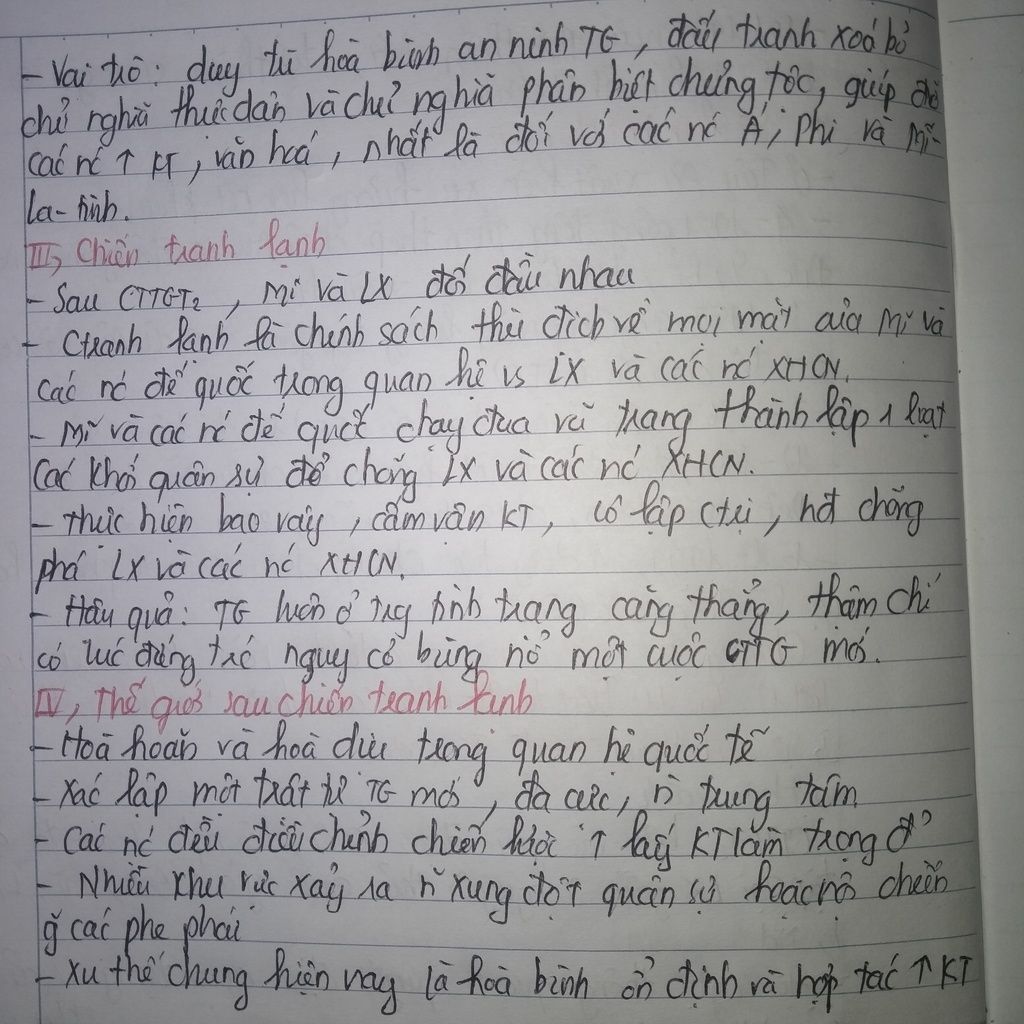 - Vai trò: duy trì hoà bình an ninh TG, đấu tranh xoá bỏ
chủ nghĩa thực dân và chủ nghĩa phân biệt chủng tộc, giúp đỡ
các nc ↑ KT, văn hoá, nhất là đối với các nc Á, Phi và Mĩ-
la-tinh.
III, Chiến tranh lạnh
- Sau CTTGT2, Mĩ và LX đối đầu nhau
- Ctranh lạnh là chính sách thù địch về mọi mặt của Mĩ và
các nc đế quốc trong quan hệ vs LX và các nc XHCN.
- Mĩ và các nc đế quốc chạy đua vũ trang thành lập 1 loạt
các khối quân sự để chống LX và các nc XHCN.
- Thực hiện bao vây, cấm vận KT, cô lập ctrị, hđ chống
phá LX và các nc XHCN.
- Hậu quả: TG luôn ở trg tình trạng căng thẳng, thậm chí
có lúc đứng trc nguy cơ bùng nổ một cuộc CTTG mới.
IV, Thế giới sau chiến tranh lạnh
- Hoà hoãn và hoà dịu trong quan hệ quốc tế
- Xác lập một trật tự TG mới, đa cực, n̄ trung tâm
- Các nc đều điều chỉnh chiến lược ↑ lấy KT làm trọng đ²
- Nhiều khu vực xảy ra n̄ xung đột quân sự hoặc nội chiến
g̃ các phe phái
- Xu thế chung hiện nay là hoà bình ổn định và hợp tác ↑ KT